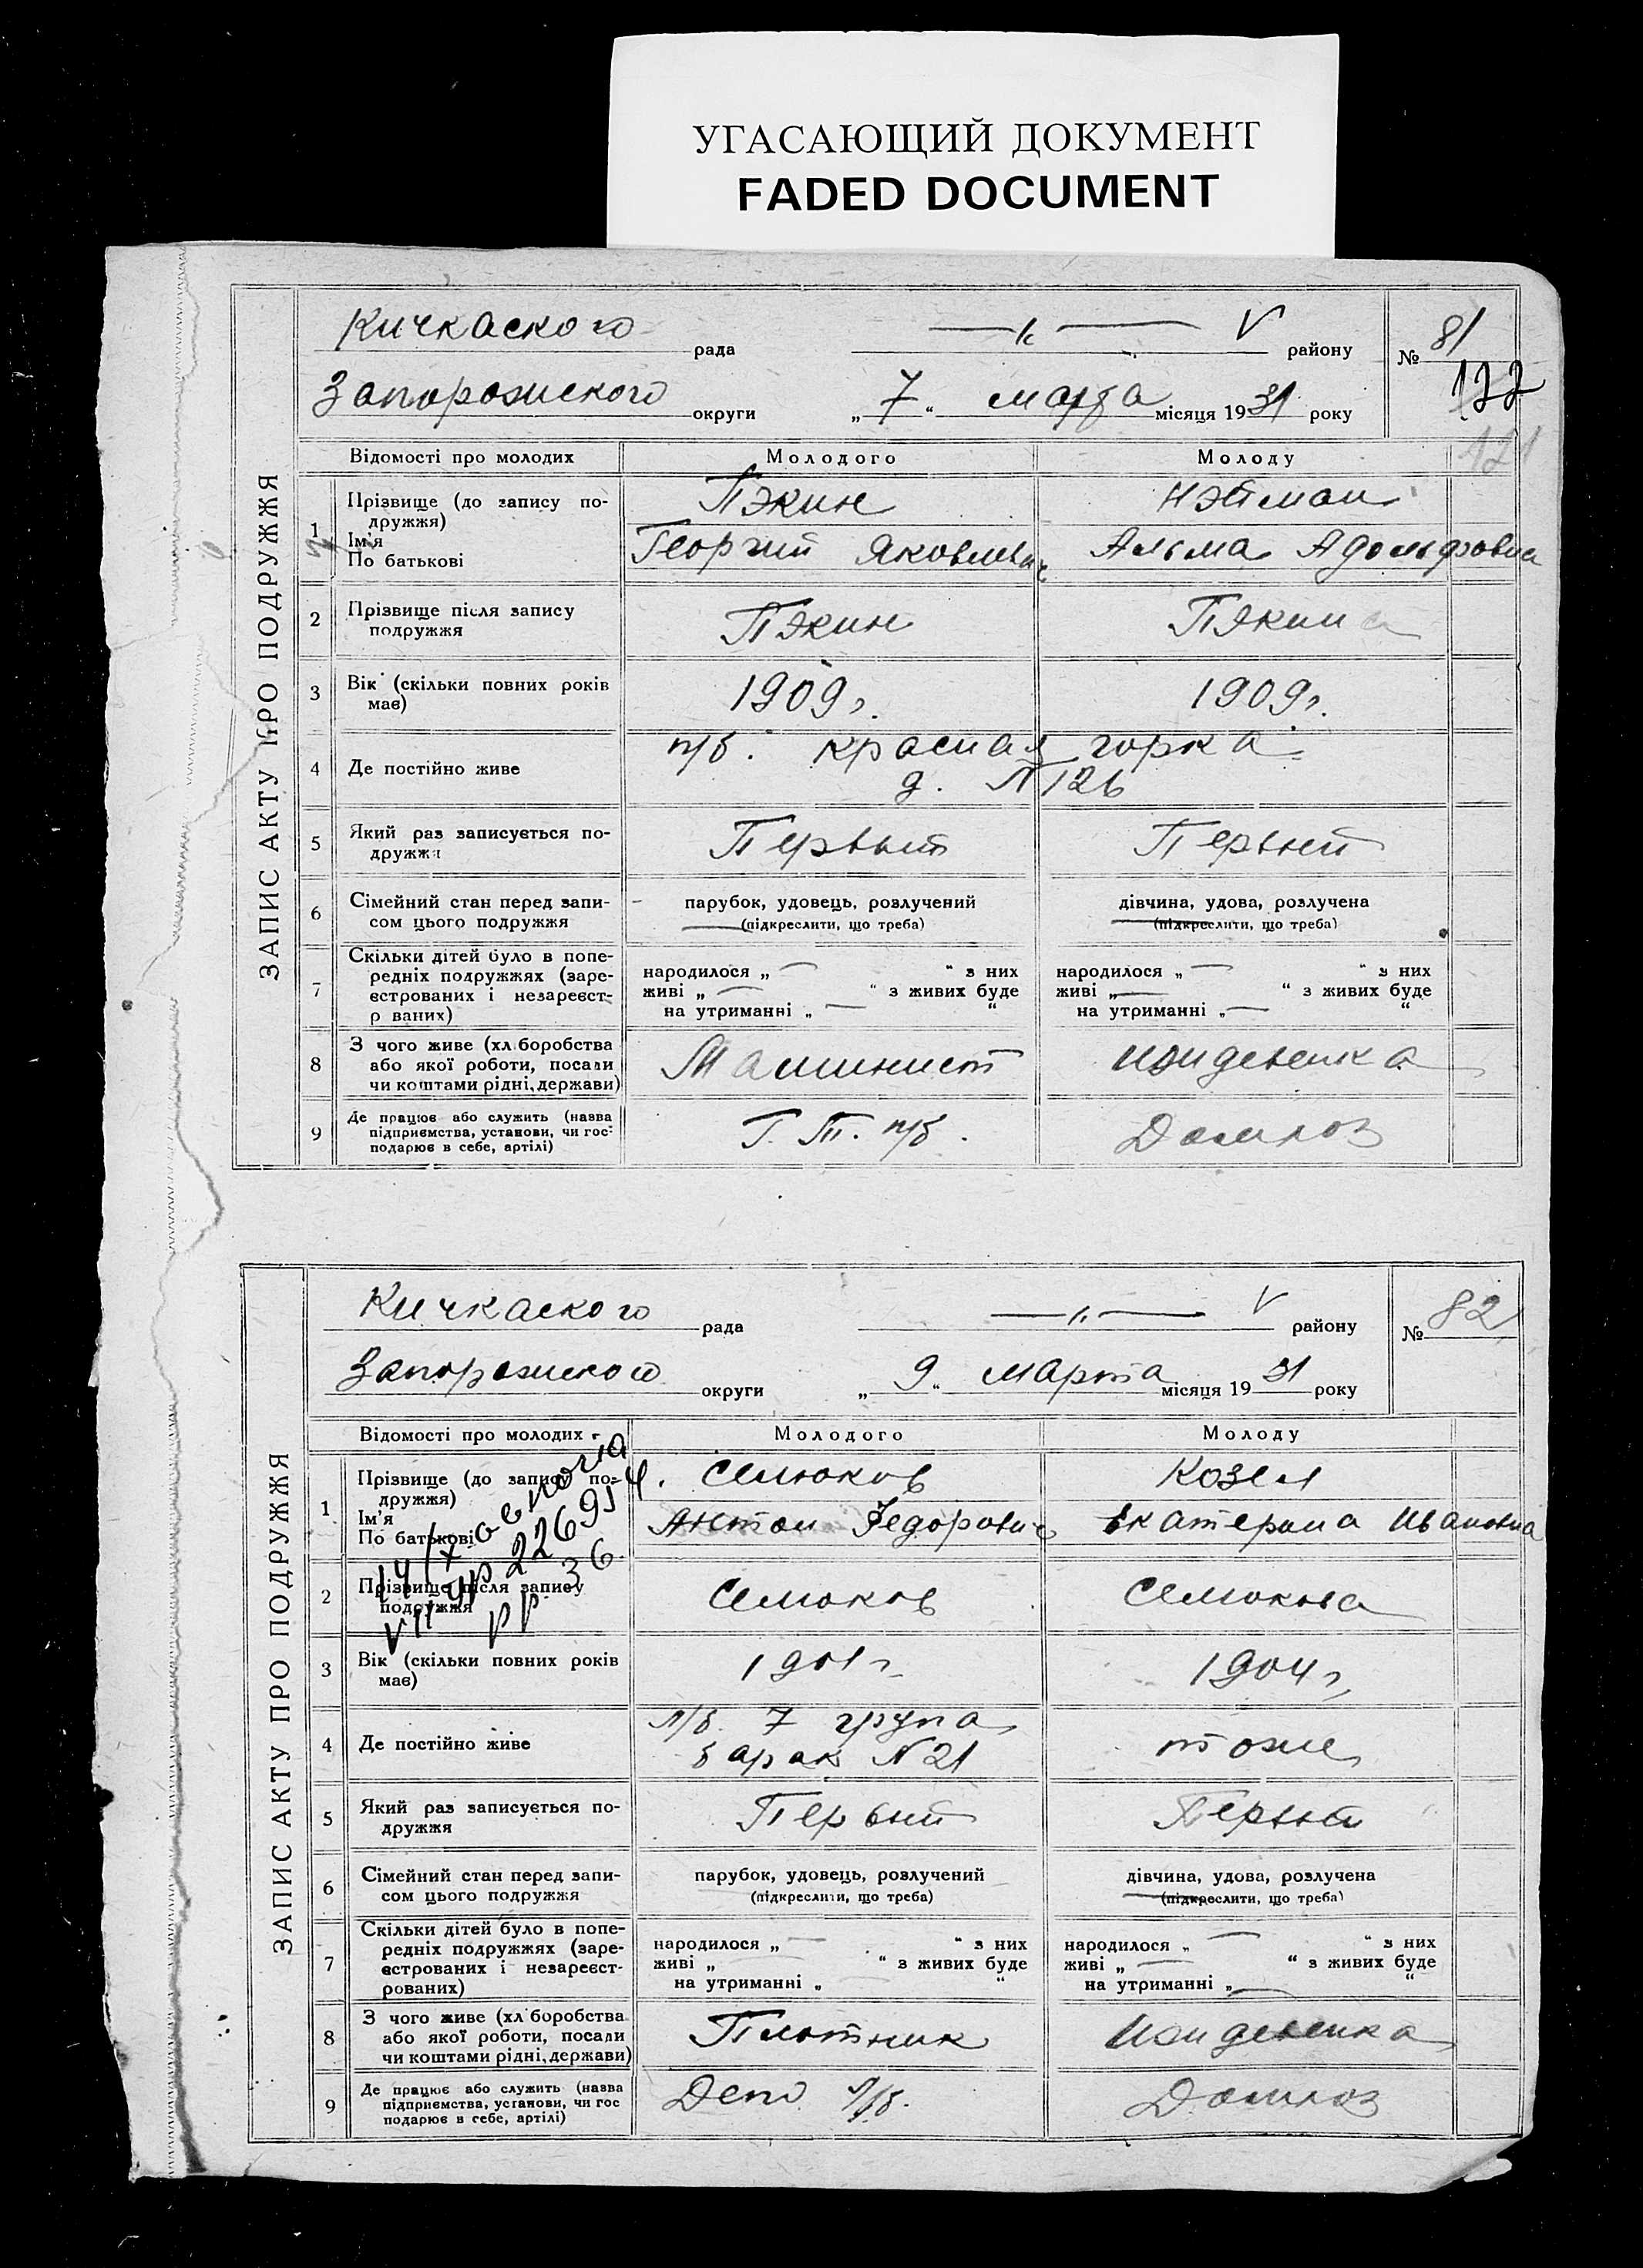 УГАСАЮЩИЙ ДОКУМЕНТ
FADED DOCUMENT
ЗАПИС АКТУ ПРО ПОДРУЖЖЯ
Кичкаского рада —"— V району № 81
Запорожского округи „7“ марта місяця 1931 року 122
121
Відомості про молодих Молодого Молоду
1 Прізвище (до запису по-
дружжя) Пэкин Нэйман
Ім'я
По батькові Георгий Яковлевич Альма Адольфовна
2 Прізвище після запису
подружжя Пэкин Пэкина
3 Вік (скільки повних років
має) 1909г. 1909г.
4 Де постійно живе п/б. красная горка
д. N 126
5 Який раз записується по-
дружжя Первый Первый
6 Сімейний стан перед запи-
сом цього подружжя парубок, удовець, розлучений дівчина, удова, розлучена
(підкреслити, що треба) (підкреслити, що треба)
7 Скільки дітей було в попе-
редніх подружжях (заре-
єстрованих і незареєст-
р ваних)
народилося „ — “ з них народилося „ — “ з них
живі „ — “ з живих буде живі „ — “ з живих буде
на утриманні „ — “ на утриманні „ — “
8 З чого живе (хл боробства
або якої роботи, посади
чи коштами рідні, держави) Машинист Иждевенка
9 Де працює або служить (назва
підприємства, установи, чи гос-
подарює в себе, артілі) Г. П. п/б. Домхоз
ЗАПИС АКТУ ПРО ПОДРУЖЖЯ
Кичкаского рада —"— V району № 82
Запорожского округи „9“ марта місяця 1931 року
Відомості про молодих Молодого Молоду
1 Прізвище (до запису по-
дружжя) Селюков Козел
Ім'я
По батькові Антон Федорович Екатерина Ивановна
2 Прізвище після запису
подружжя Селюков Селюкова
3 Вік (скільки повних років
має) 1901г 1904г.
4 Де постійно живе п/б. 7 група
барак N 21 тоже
5 Який раз записується по-
дружжя Первый Первый
6 Сімейний стан перед запи-
сом цього подружжя парубок, удовець, розлучений дівчина, удова, розлучена
(підкреслити, що треба) (підкреслити, що треба)
7 Скільки дітей було в попе-
редніх подружжях (заре-
єстрованих і незареєст-
рованих)
народилося „ — “ з них народилося „ — “ з них
живі „ “ з живих буде живі „ — “ з живих буде
на утриманні „ “ на утриманні „ — “
8 З чого живе (хл боробства
або якої роботи, посади
чи коштами рідні, держави) Плотник Иждевенка
9 Де працює або служить (назва
підприємства, установи, чи гос
подарює в себе, артілі) Депо п/б. Домхоз